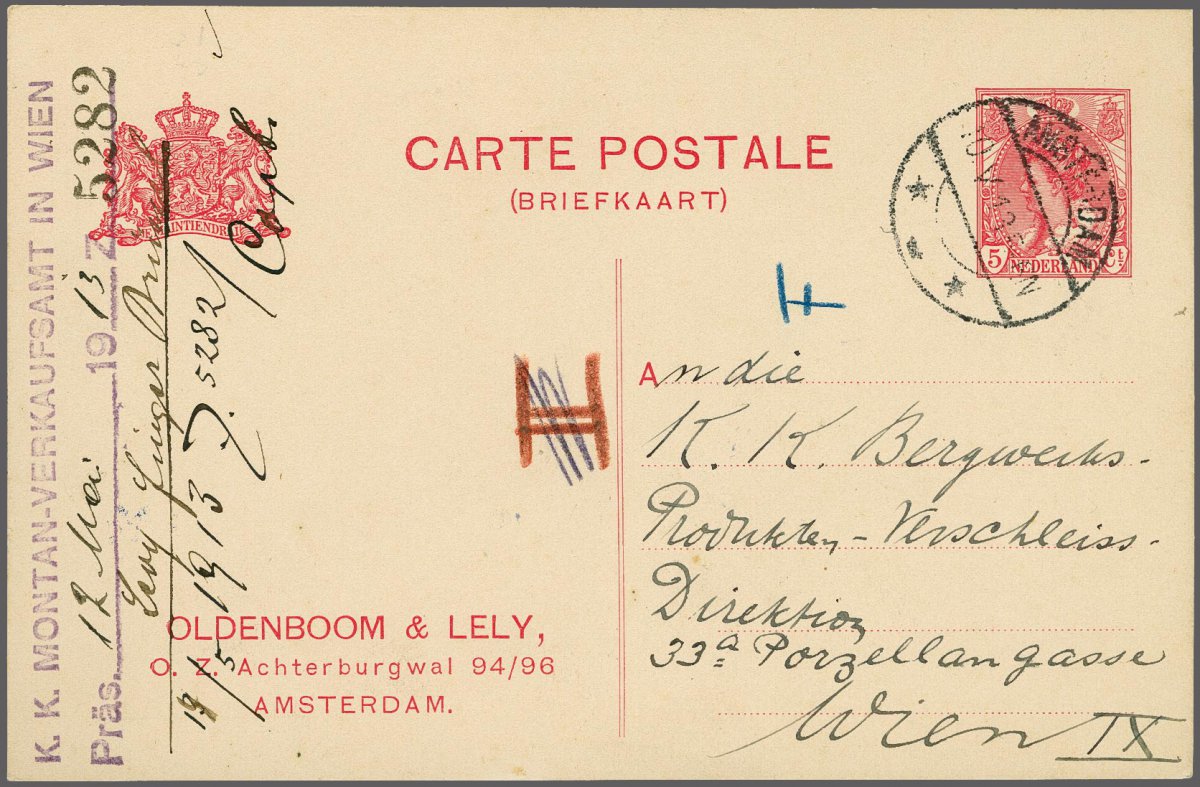 K. K. MONTAN-VERKAUFSAMT IN WIEN
Präs. 12 Mai 1913 Z 5282
JE MAINTIENDRAI
1913 Z. 5282
CARTE POSTALE
(BRIEFKAART)
AMSTERDAM
5 Ct.
NEDERLAND
II
An die
K. K. Bergwerks-
Produkten-Verschleiss-
Direktion
33a Porzellangasse
Wien IX
OLDENBOOM & LELY,
O. Z. Achterburgwal 94/96
AMSTERDAM.